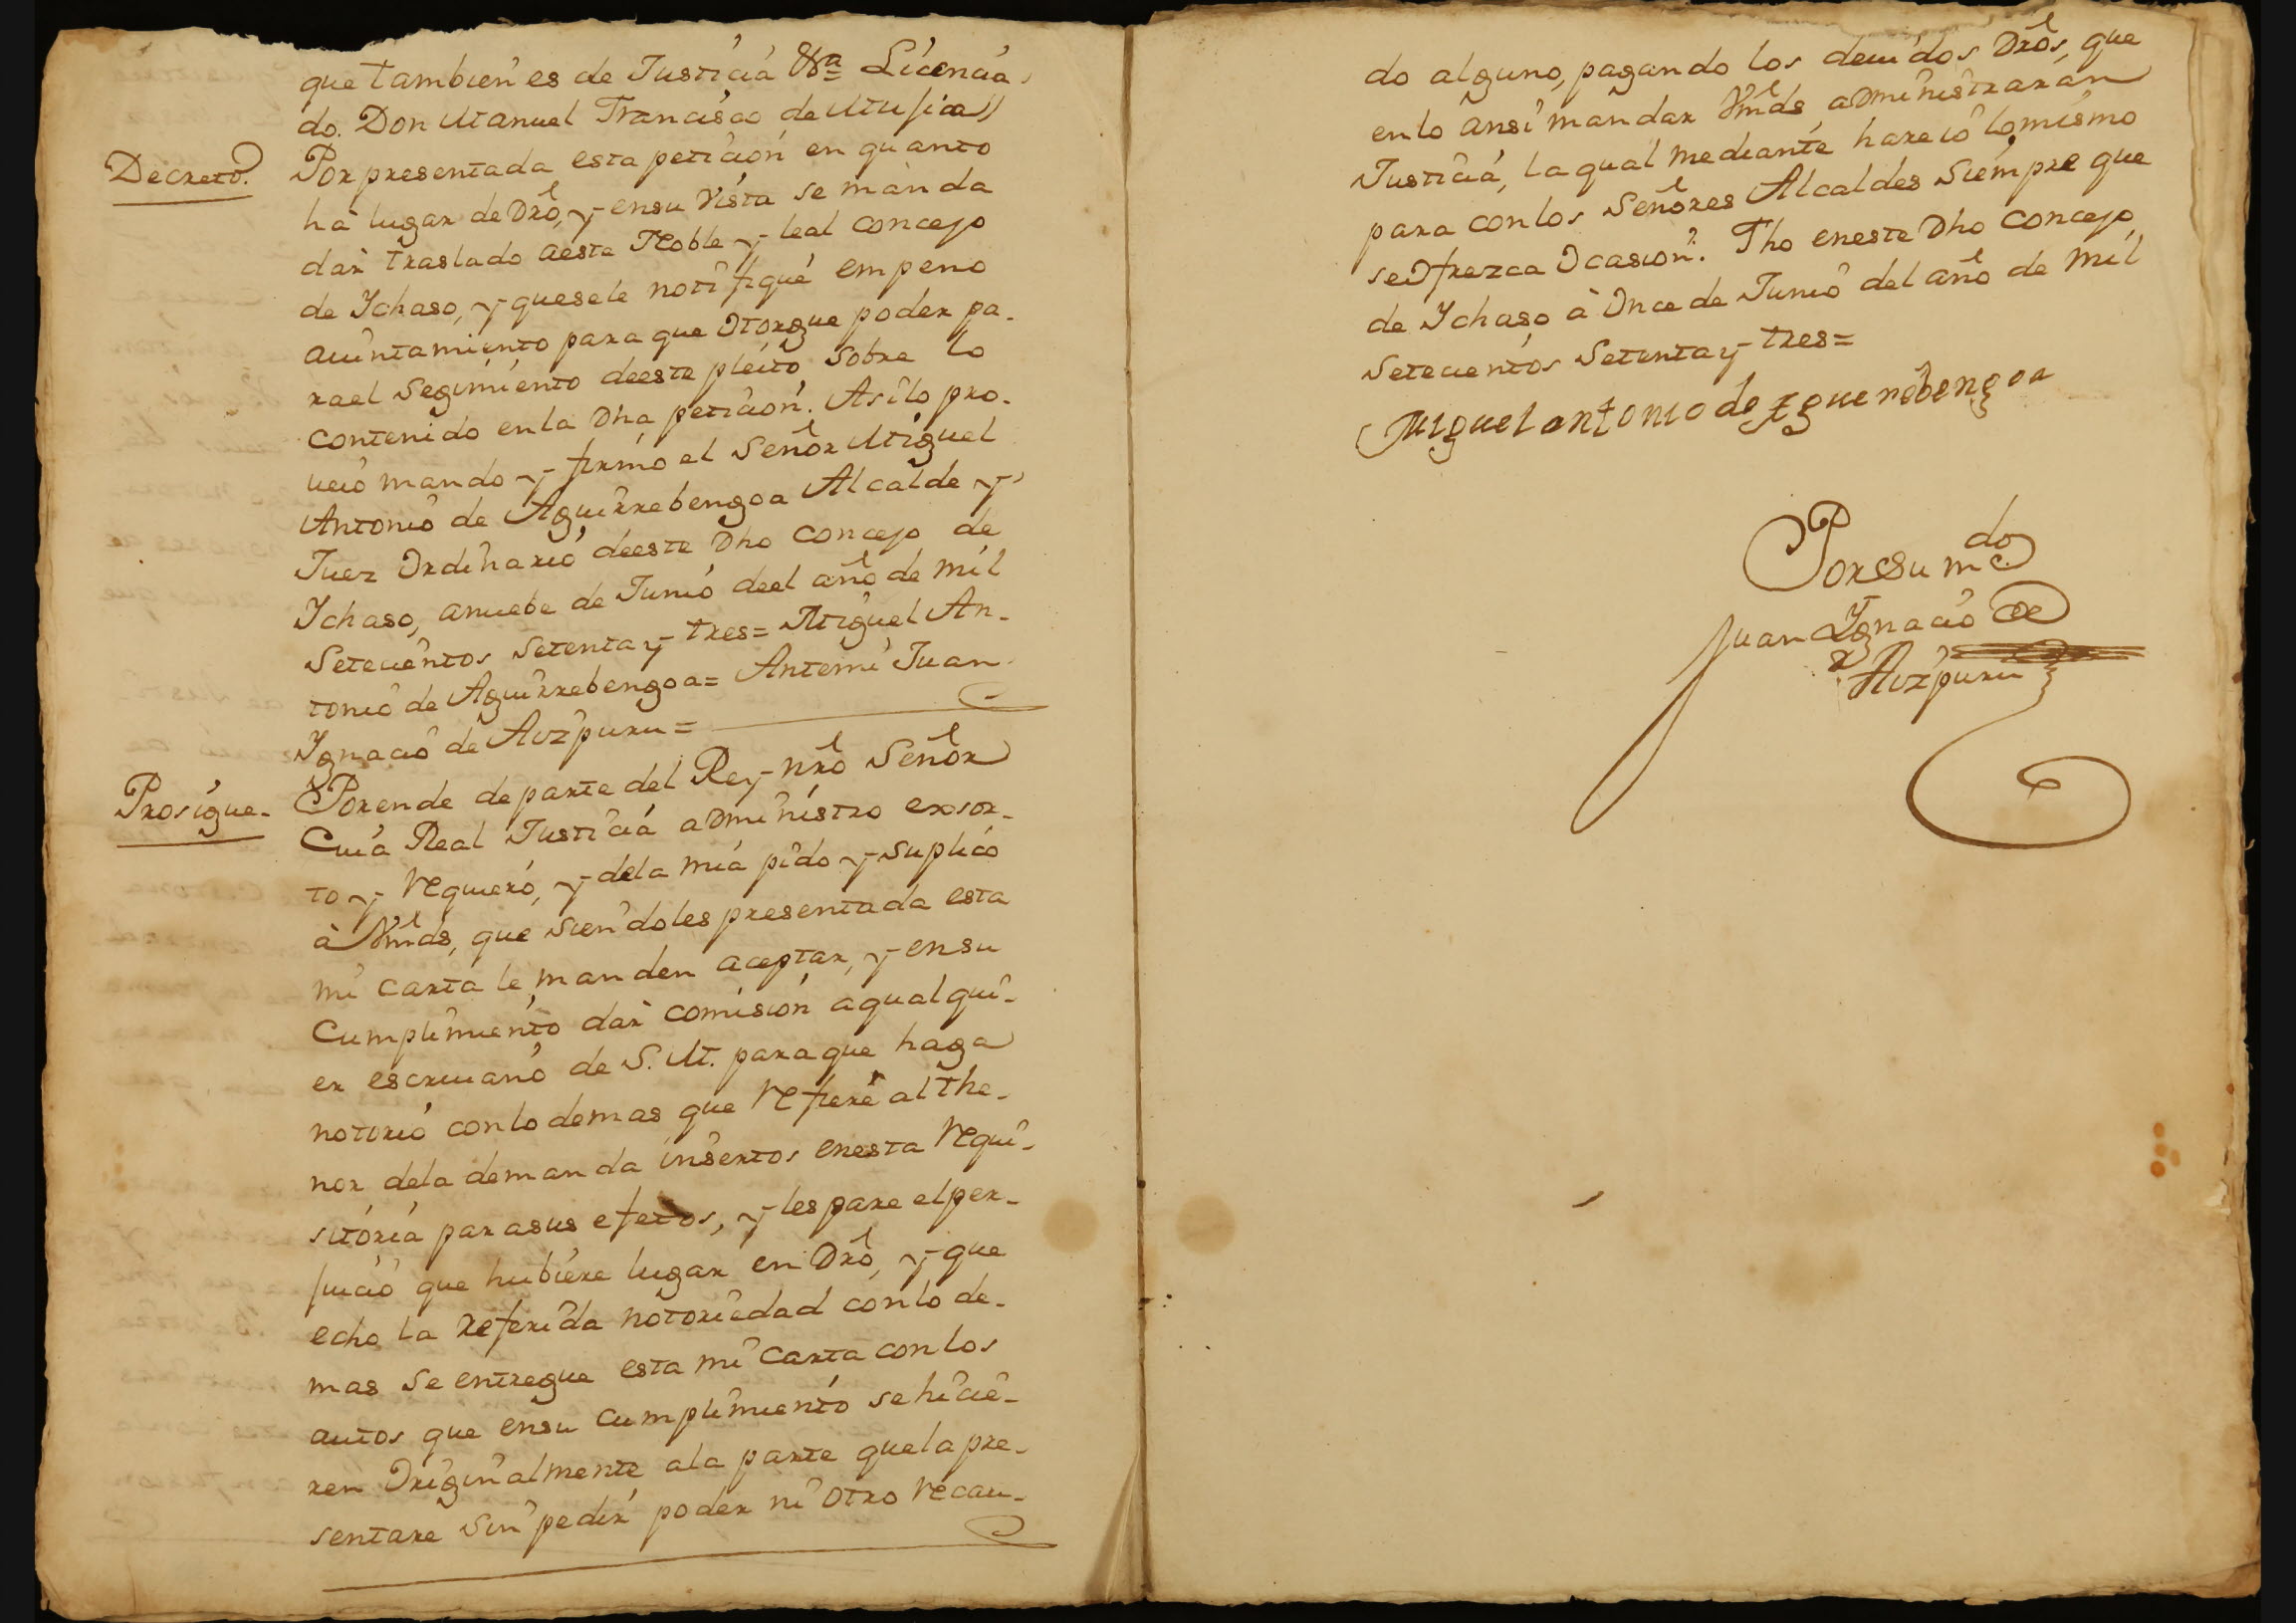 que tambien es de Justicia &ra Licencia
do. Don Manuel Francisco de Mujica//
Decreto. Por presentada esta peticion en quanto
ha lugar de Dro, y en su vista se manda
dar traslado a esta Noble y leal concejo
de Ychaso, y que se le notifique em peno
auintamiento para que Otorgue poder pa-
ra el segimiento de este pleito sobre lo
contenido en la Dha peticion. Asi lo pro-
ueio mando y firmo el Señor Miguel
Antonio de Aguirrebengoa Alcalde y
Juez Ordinario de este Dho concejo de
Ychaso, a nuebe de Junio de el año de mil
Setecientos setenta y tres= Miguel An-
tonio de Aguirrebengoa= Antemi Juan
Ygnacio de Auzpuru=
Prosigue- Porende de parte del Rey nro Señor
Cuia Real Justicia administro exsor-
to y requiero, y de la mia pido y suplico
à Vmds, que siendoles presentada esta
mi carta le manden aceptar, y en su
Cumplimiento dar comision a qualqui-
er escriuano de S. M. para que haga
notorio con lo demas que refiere al the-
nor de la demanda insertos en esta requi-
sitoria para sus efectos, y les pare el per-
juicio que hubiere lugar en Dro, y que
echo la referida notoriedad con lo de-
mas se entregue esta mi carta con los
autos que en su cumplimiento se hicie-
ren Originalmente a la parte que la pre-
sentare sin pedir poder ni otro recau-
do alguno, pagando los deuidos Dros, que
en lo ansi mandar Vmds administraràn
Justicia, la qual mediante hare io lo mismo
para con los Señores Alcaldes siempre que
se Ofrezca Ocasion. Fho en este Dho concejo
de Ychaso à Once de Junio del año de mil
Setecientos Setenta y tres=
Miguel antonio de Eguerebengoa
Por su mdo.
Juan Ygnacio de
Auzpuru